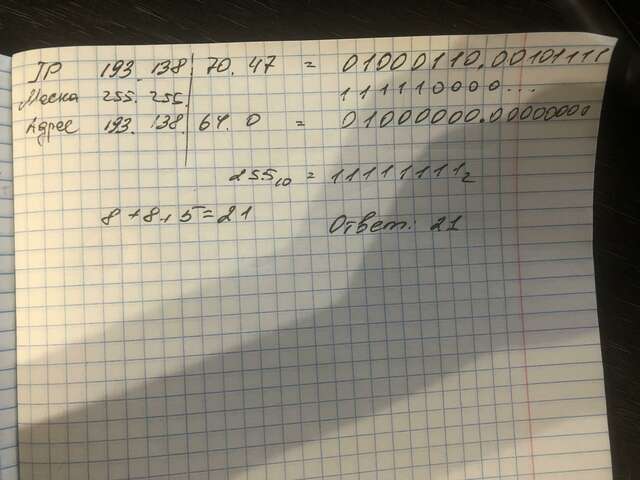 IP 193. 138. 70. 47 = 01000110.00101111
Маска 255. 255. 111110000...
Адрес 193. 138. 64. 0 = 01000000.00000000
255₁₀ = 11111111₂
8+8+5=21 Ответ: 21